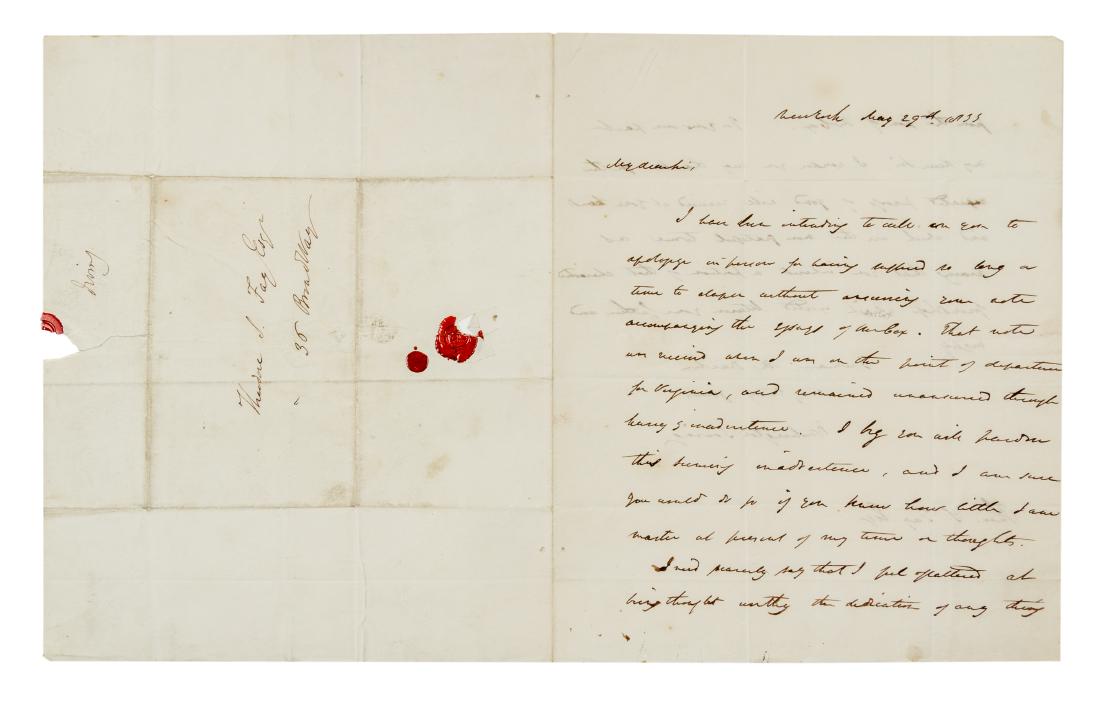 Irving
Theodore S. Fay Esq
38 Broadway
New York May 29th 1833
My dear Sir,
I have been intending to call on you to
apologize in person for having suffered so long a
time to elapse without answering your note
accompanying the Essays of Arbox. That note
was received when I was on the point of departure
for Virginia, and remained unanswered through
hurry & inadvertence. I beg you will pardon
this seeming inadvertence, and I am sure
you would do so if you knew how little I am
master at present of my time or thoughts.
I need scarcely say that I feel flattered at
being thought worthy the dedication of any thing